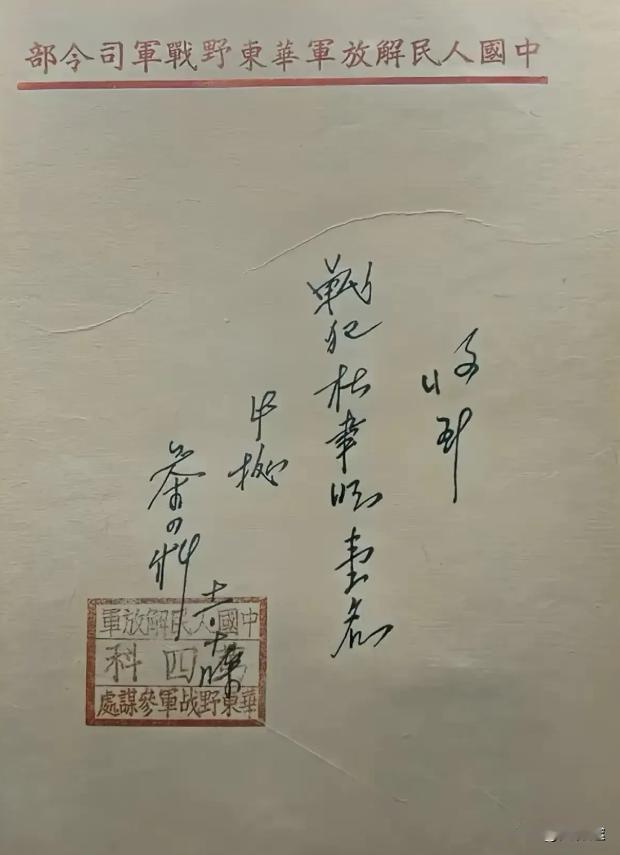 中國人民解放軍華東野戰軍司令部
收到
戰犯杜聿明壹名
此据
参四科
中國人民解放軍
第四科
華東野战軍參謀處